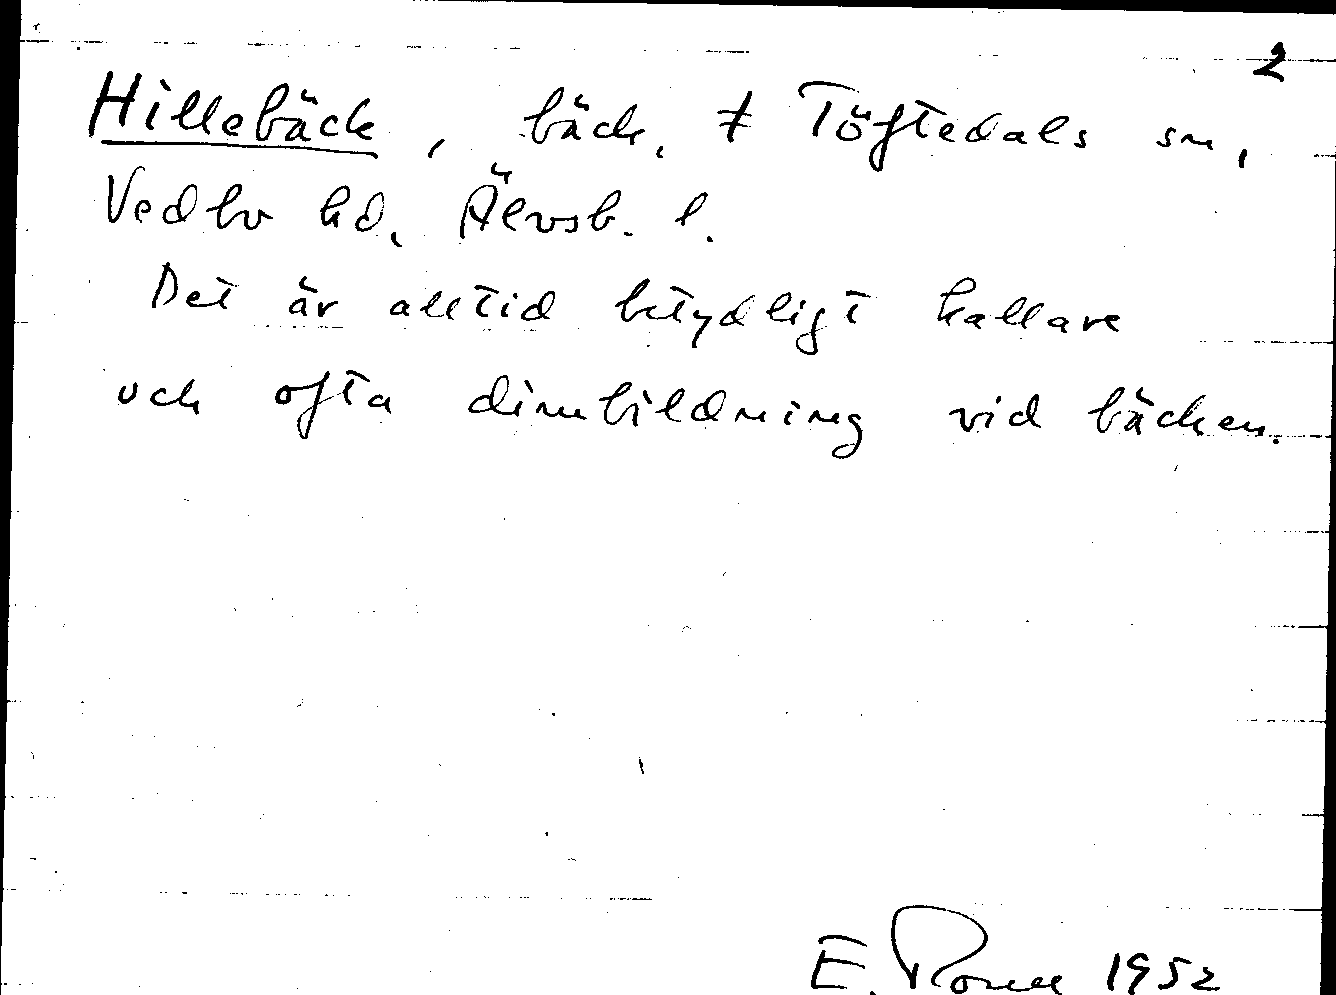 2
Hillebäck, bäck, ≠ Töftedals sn,
Vedbo hd, Älvsb. l.
Det är alltid betydligt kallare
och ofta dimbildning vid bäcken.
E. 1952